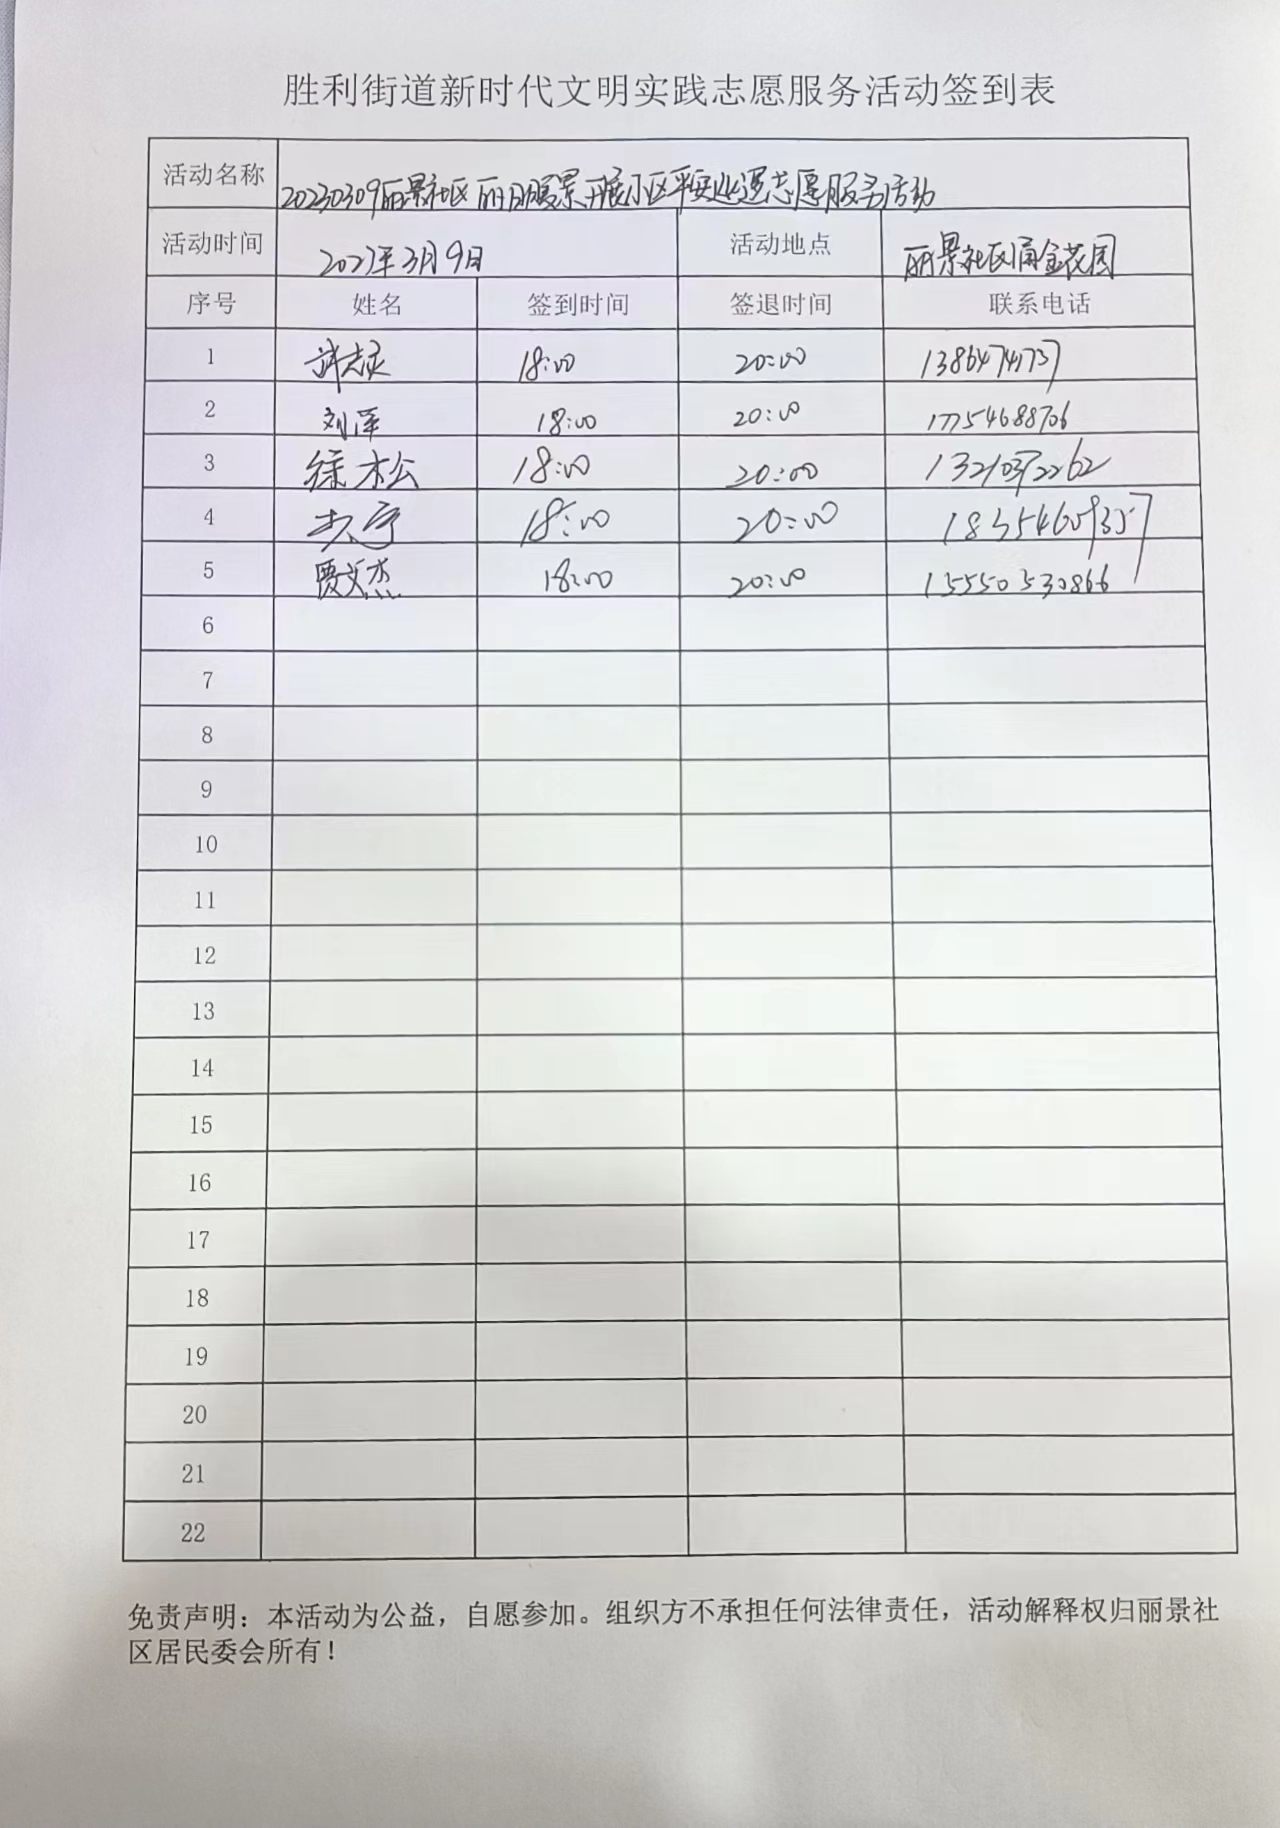 胜利街道新时代文明实践志愿服务活动签到表
活动名称 20230309丽景社区丽日暖景开展小区平安巡逻志愿服务活动
活动时间 2023年3月9日 活动地点 丽景社区涌金花园
序号 姓名 签到时间 签退时间 联系电话
1 18:00 20:00
2 刘泽 18:00 20:00 17754688706
3 徐松 18:00 20:00 13210372262
4 18:00 20:00 18354609357
5 贾文杰 18:00 20:00 15550530866
6
7
8
9
10
11
12
13
14
15
16
17
18
19
20
21
22
免责声明：本活动为公益，自愿参加。组织方不承担任何法律责任，活动解释权归丽景社
区居民委会所有！